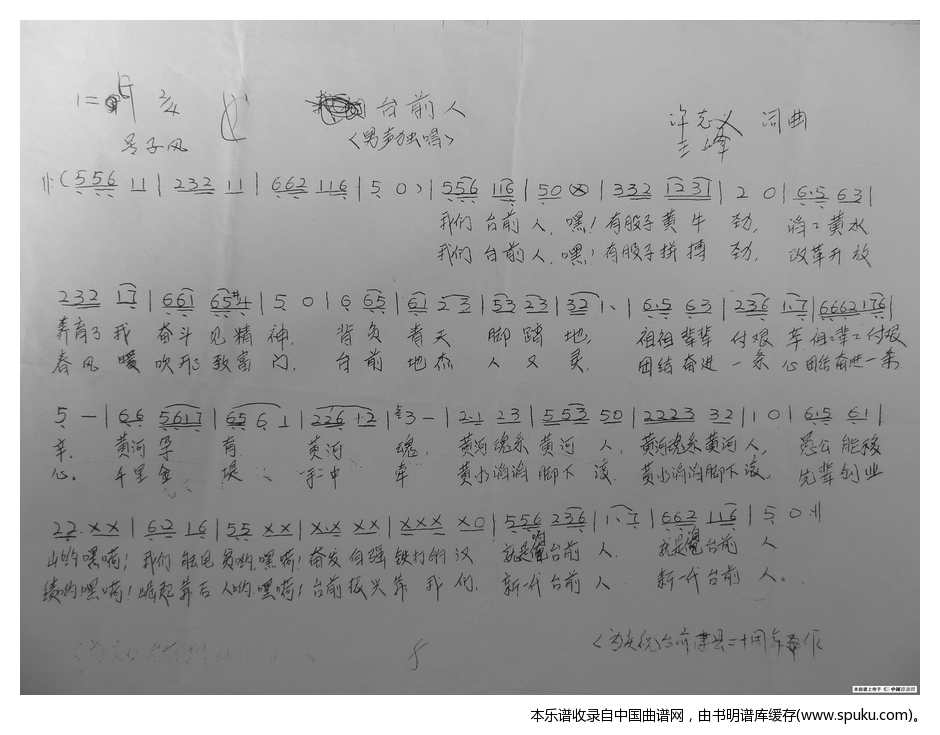 1= 2/4 台前人
〈男声独唱〉 许志义 词曲
号子风
‖:(5 5 6 1 1 | 2 3 2 1 1 | 6 6 2 1 1 6 | 5 0) | 5 5 6 1 1 6 | 5 0 ⊗ | 3 3 2 1 2 3 1 | 2 0 | 6·5 6 3 |
我们台前人,嘿!有股子黄牛劲,黄水
我们台前人,嘿!有股子拼搏劲,改革开放
2 3 2 1 7 | 6 6 1 6 5 #4 | 5 0 | 6 6 5 | 6 1 2 3 | 5 3 2 3 | 3 2 1· | 6·5 6 3 | 2 3 6 1·7 | 6 6 6 2 1 7 6 |
养育了我奋斗见精神,背负青天脚踏地,祖祖辈辈付艰辛祖祖辈辈付艰
春风暖吹形致富门,台前地杰人又灵,团结奋进一条心团结奋进一条
5 – | 6 6 5 6 1 7 | 6 5 6 1 | 2 2 6 1·2 | 3 – | 2·1 2 3 | 5 5 3 5 0 | 2 2 2 3 3 2 | 1 0 | 6·5 6 1 |
辛,黄河孕育黄河魂,黄河魂系黄河人,黄河魂系黄河人,愚公能移
心。千里金堤手中牵黄水滔滔脚下滚,黄水滔滔脚下滚,先辈创业
2 2· X X | 6·2 1 6 | 5 5 X X | X·X X X | X X X X 0 | 5 5 6 2 3 6 | 1·7 | 6 6 2 1 1 6 | 5 0 :‖
山哟嘿嗬!我们能嘿嗬!奋发自强铁打的汉就是俺台前人,就是俺台前人
绩哟嘿嗬!崛起靠后人哟嘿嗬!台前振兴靠我们,新一代台前人新一代台前人。
〈为庆祝台前建县二十周年而作〉
本曲谱上传于 中国曲谱网
本乐谱收录自中国曲谱网，由书明谱库缓存(www.spuku.com)。